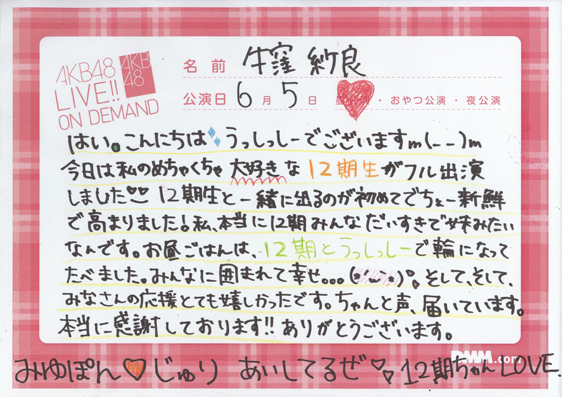 AKB48
LIVE!!
ON DEMAND
AKB
48
名前 牛窪 紗良
公演日 6月5日 ・おやつ公演・夜公演
はい。こんにちは うっしっしーでございますm(--)m
今日は私のめちゃくちゃ大好きな12期生がフル出演
しました♡♡ 12期生と一緒に出るのが初めてでちょー新鮮
で高まりました!私、本当に12期みんなだいすきで妹みたい
なんです。お昼ごはんは、12期とうっしっしーで輪になって
たべました。みんなに囲まれて幸せ...(◍'ᴗ'◍)。そして、そして、
みなさんの応援とても嬉しかったです。ちゃんと声、届いています。
本当に感謝しております!!ありがとうございます。
DMM.com
みゆぽん♡じゅり あいしてるぜ♡♡12期ちゃんLOVE.